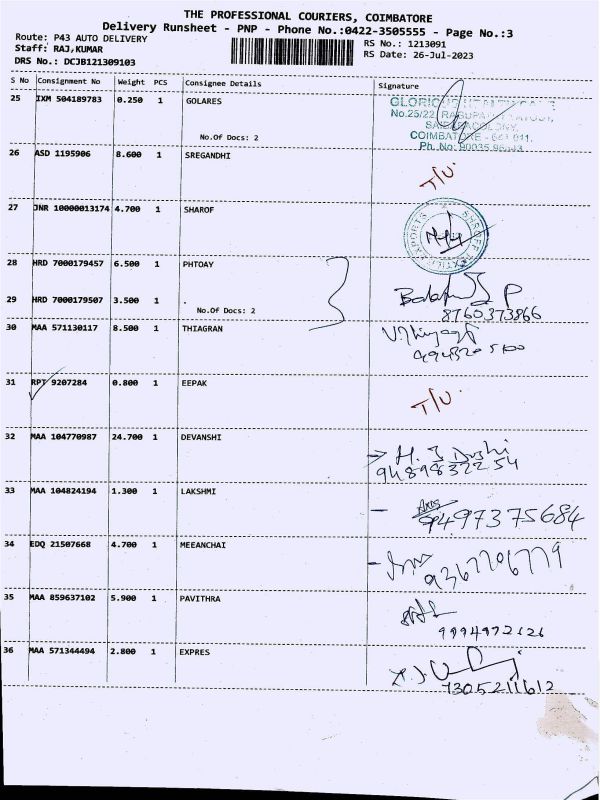 THE PROFESSIONAL COURIERS, COIMBATORE
Delivery Runsheet - PNP - Phone No.:0422-3505555 - Page No.:3
Route: P43 AUTO DELIVERY
RS No.: 1213091
Staff: RAJ,KUMAR
RS Date: 26-Jul-2023
DRS No.: DCJB121309103
S No Consignment No Weight PCS Consignee Details Signature
25 IXM 504189783 0.250 1 GOLARES
No.25/22,
COIMBATORE - 641 011.
No.Of Docs: 2
26 ASD 1195906 8.600 1 SREGANDHI
T/U.
27 JNR 10000013174 4.700 1 SHAROF
28 HRD 7000179457 6.500 1 PHTOAY
29 HRD 7000179507 3.500 1 .
8760373866
No.Of Docs: 2
30 MAA 571130117 8.500 1 THIAGRAN
31 RPT 9207284 0.800 1 EEPAK
T/U.
32 MAA 104770987 24.700 1 DEVANSHI
9489832254
33 MAA 104824194 1.300 1 LAKSHMI
9497375684
34 EDQ 21507668 4.700 1 MEEANCHAI
9367706779
35 MAA 859637102 5.900 1 PAVITHRA
36 MAA 571344494 2.800 1 EXPRES
7305211612